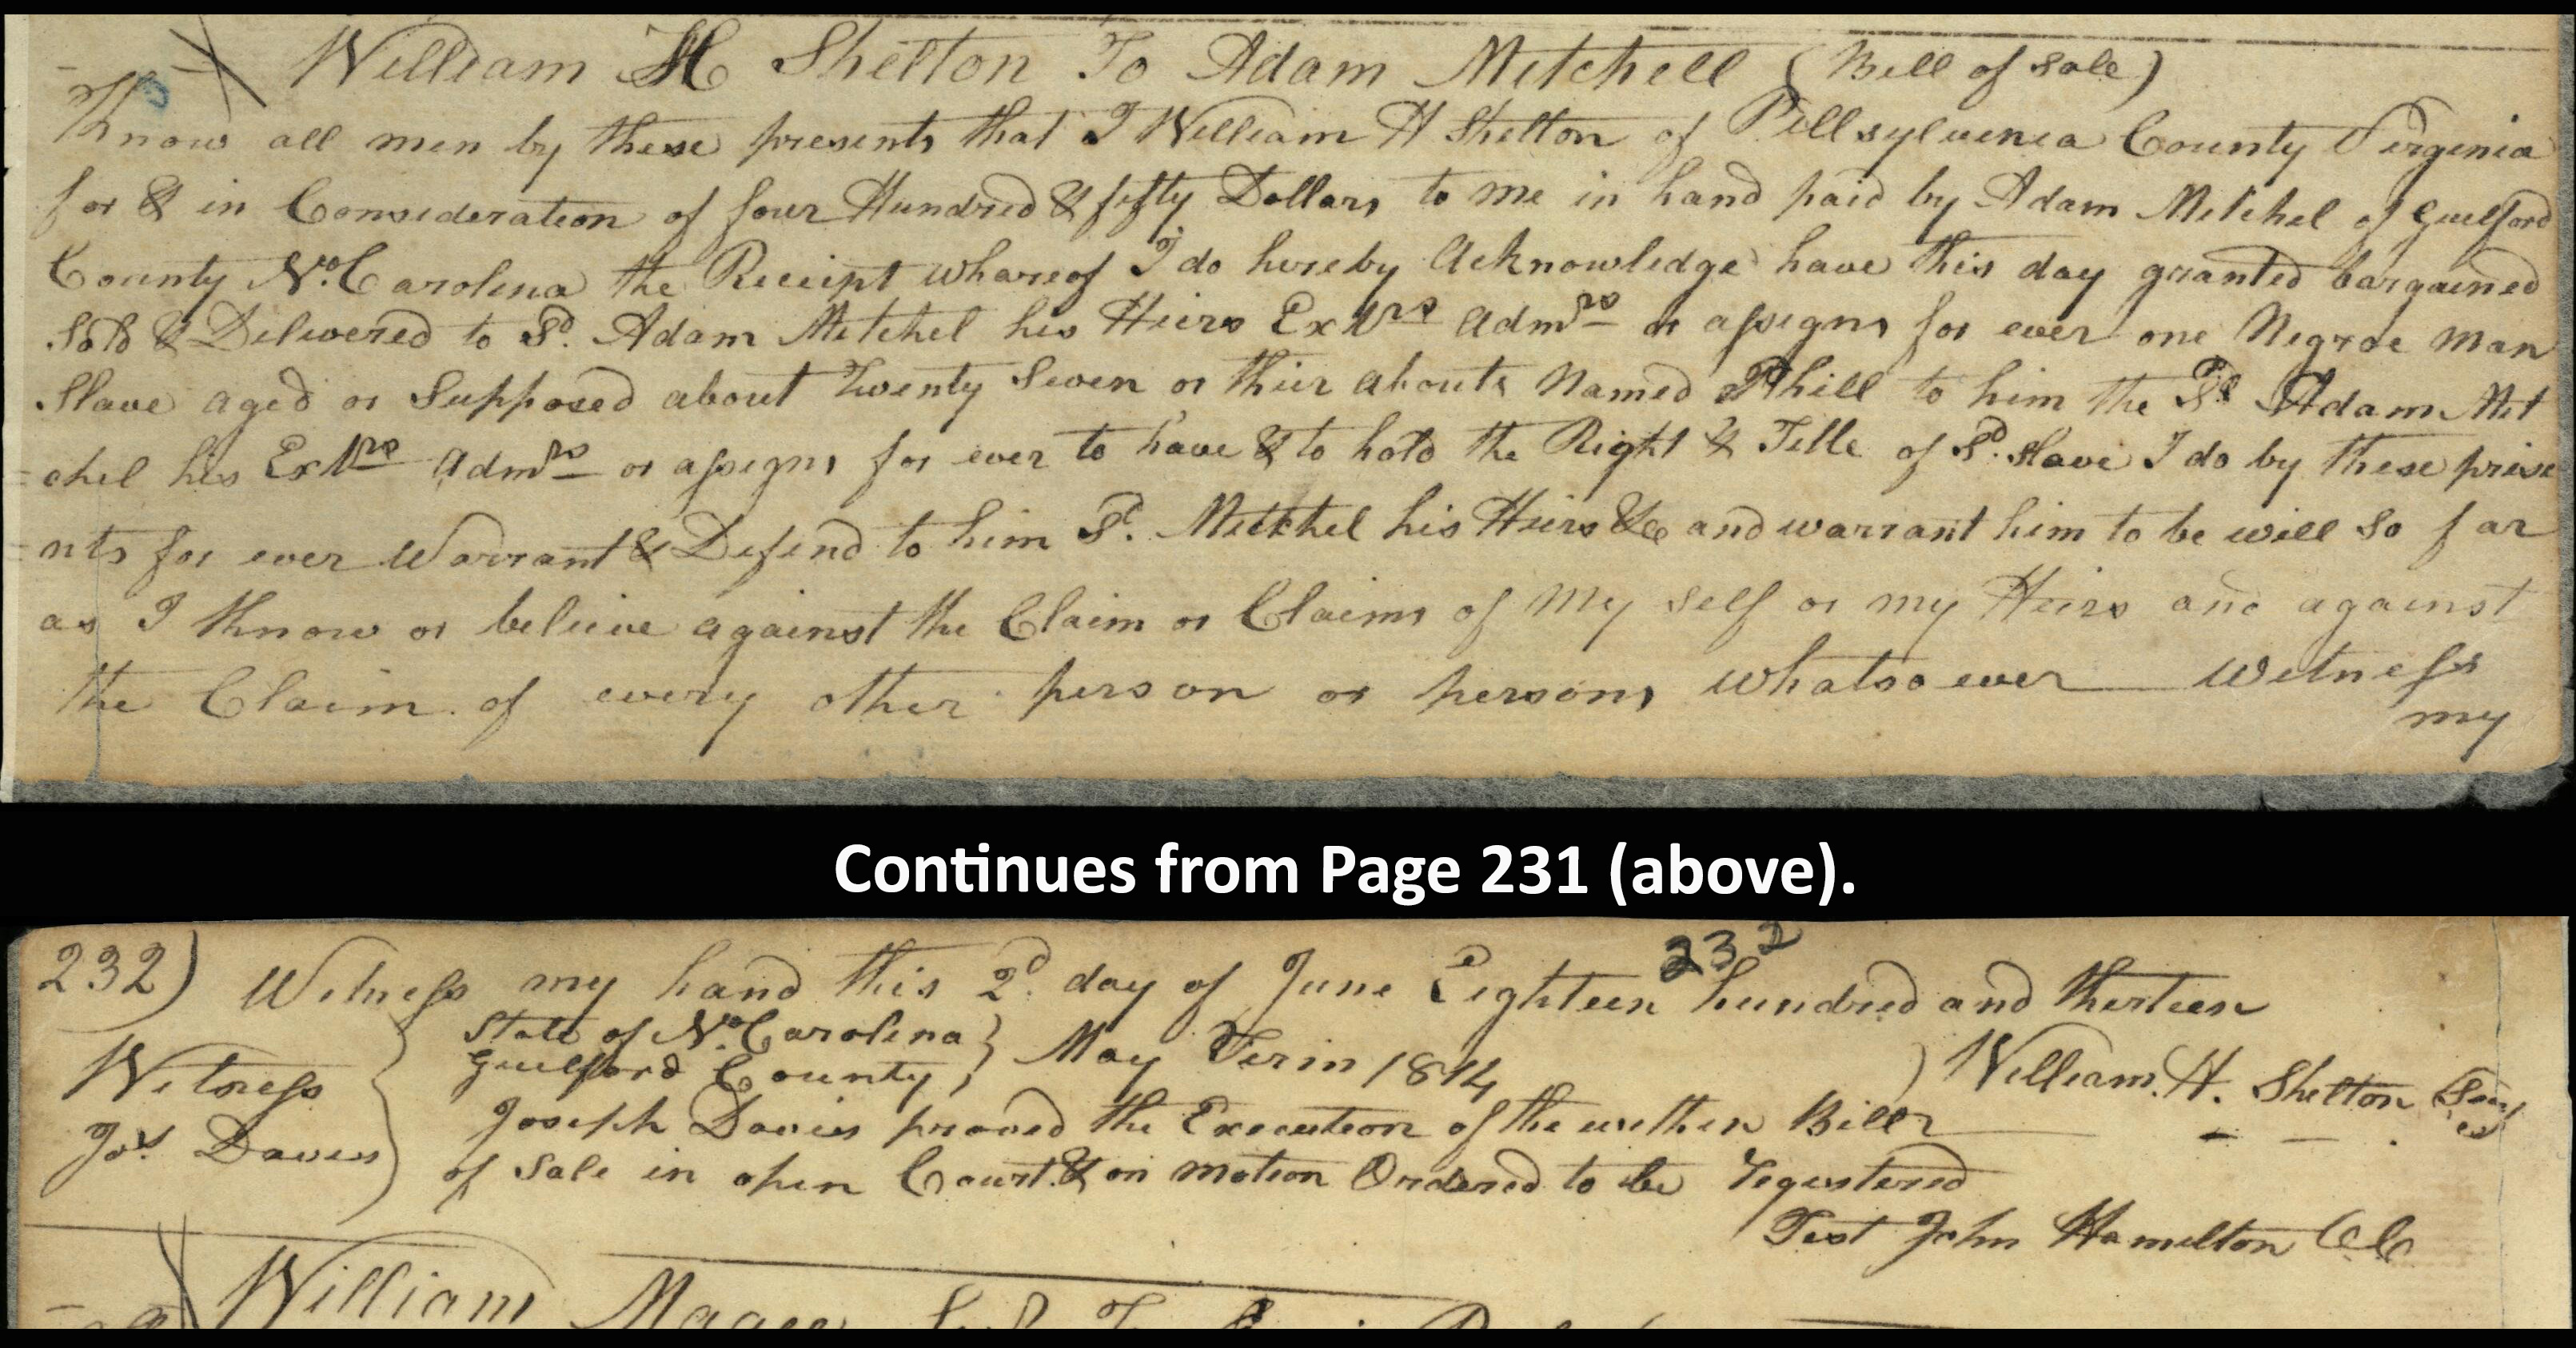 William H Shelton To Adam Mitchell (Bill of sale)
Know all men by these presents that I William H Shelton of Pillsylvenia County Virginia
for & in Consideration of four Hundred & fifty Dollars to me in hand paid by Adam Mitchel of Guilford
County No. Carolina the Receipt whareof I do hereby Acknowledge have this day granted bargained
Sold & Delivered to Sd. Adam Mitchel his Heirs Exrs Admrs or assigns for ever one Negroe man
Slave aged or Supposed about Twenty Seven or thier abouts Named Phill to him the Sd Adam Mit
chel his Exrs Admrs or assigns for ever to have & to hold the Right & Title of Sd. Slave I do by these prise
nts for ever Warrant & Defend to him Sd. Mitchel his Heirs &c and warrant him to be will so far
as I Know or believe against the Claim or Claims of My self or my Heirs and against
the Claim of every other person or persons whatsoever Witness
my
Continues from Page 231 (above).
232
232) Witness my hand this 2d. day of June Eighteen hundred and thirteen
State of No. Carolina } May Term 1814
Guilford County }
William. H. Shelton
Witness
Jos. Davis
Joseph Davis proved the Execution of the within Bill
of Sale in open Court & on motion Ordered to be registered
Test John Hamilton CC
William Magee